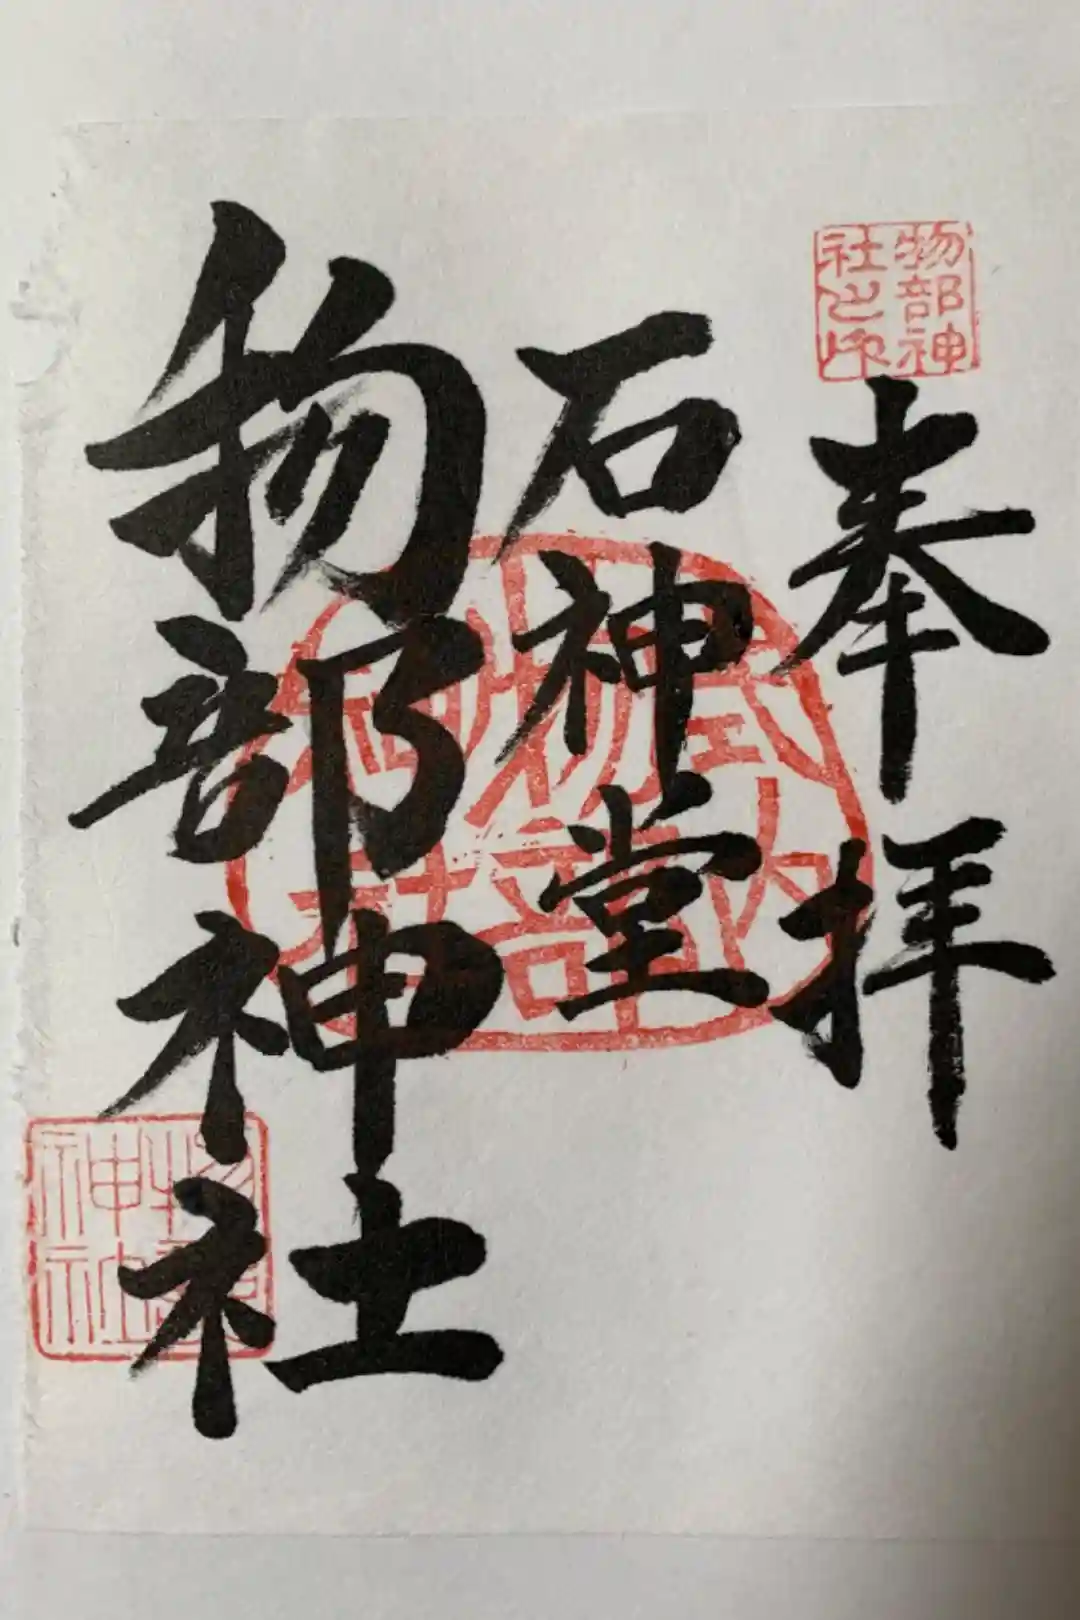 物部神
社之印
奉拝
石神堂
物部神社
式内
物部
神社
物部
神社